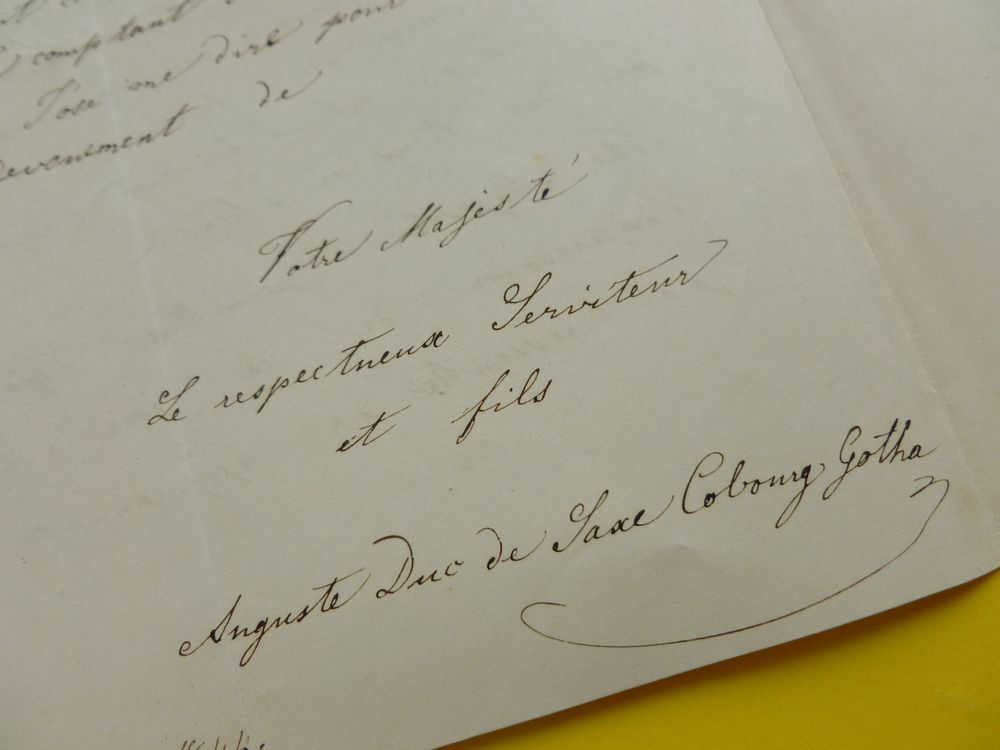 comptant
J'ose me dire pour
de
Votre Majesté
Le respectueux Serviteur
et fils
Auguste Duc de Saxe Cobourg Gotha